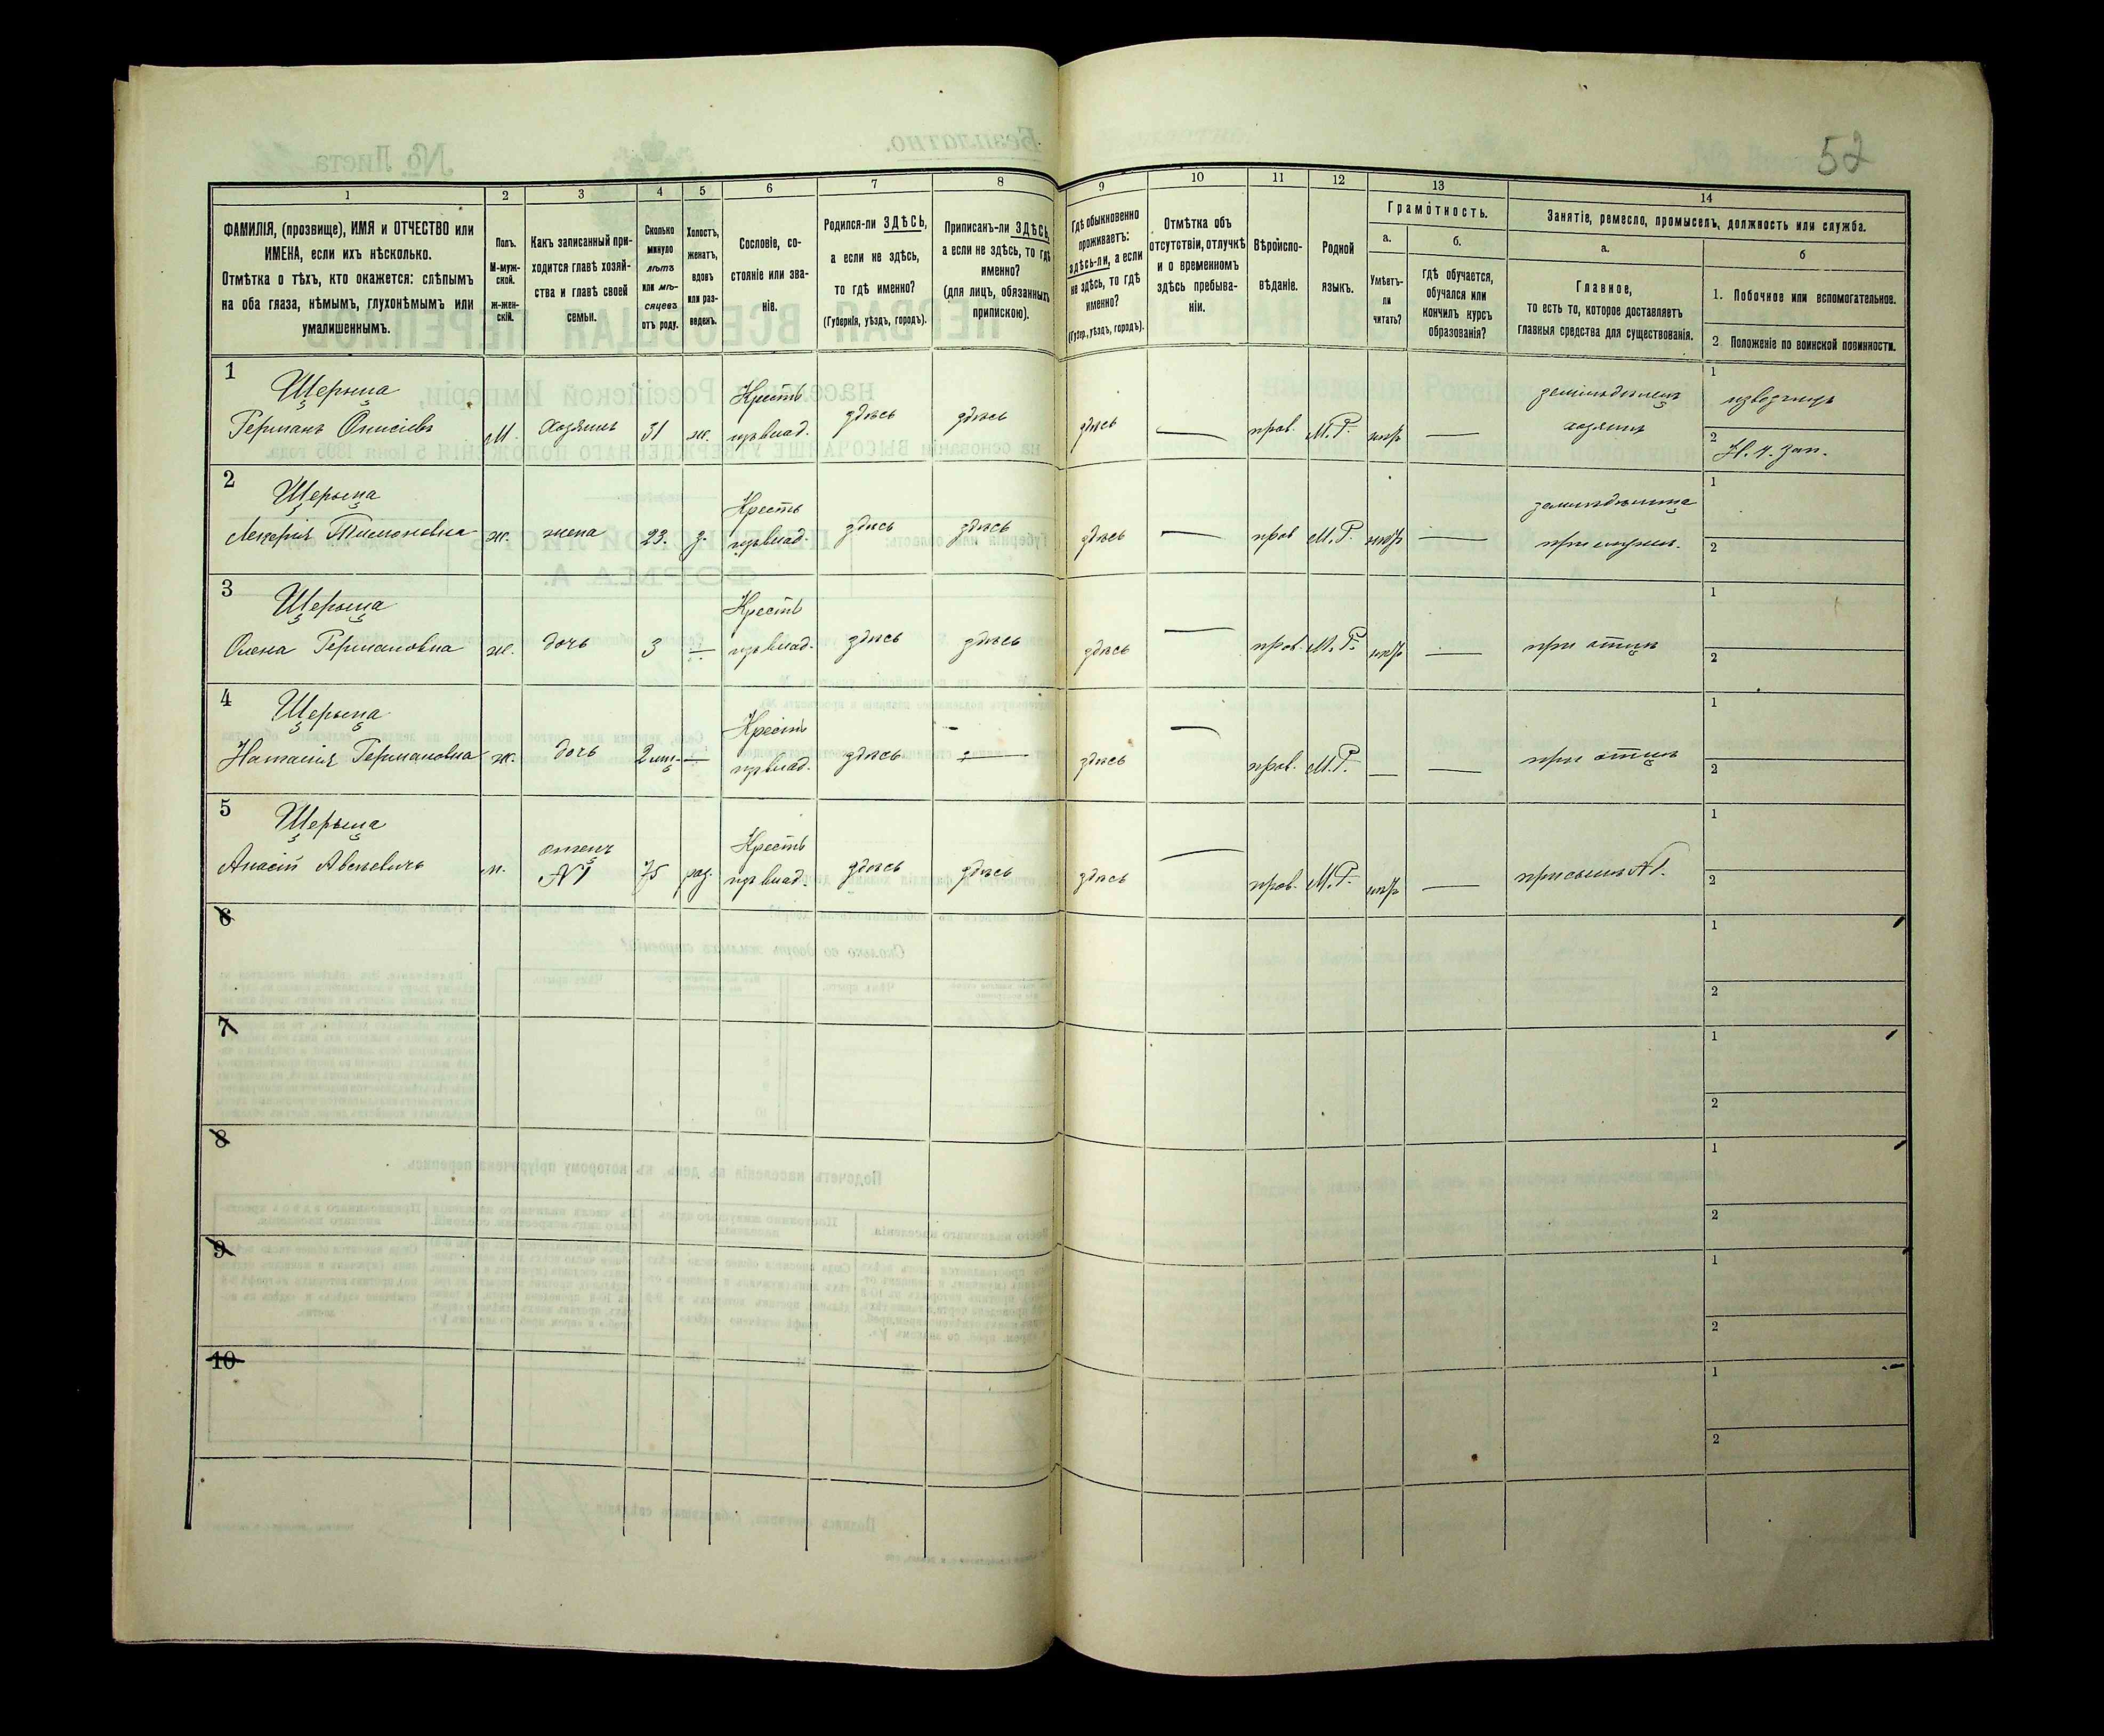 52
1
2
3
4
5
6
7
8
9
10
11
12
13
14
ФАМИЛІЯ, (прозвище), ИМЯ и ОТЧЕСТВО или
ИМЕНА, если ихъ нѣсколько.
Отмѣтка о тѣхъ, кто окажется: слѣпымъ
на оба глаза, нѣмымъ, глухонѣмымъ или
умалишеннымъ.
Полъ.
М-муж-
ской.
ж-жен-
скій.
Какъ записанный при-
ходится главѣ хозяй-
ства и главѣ своей
семьи.
Сколько
минуло
лѣтъ
или мѣ-
сяцевъ
отъ роду.
Холостъ,
женатъ,
вдовъ
или раз-
веденъ.
Сословіе, со-
стояніе или зва-
ніе.
Родился-ли ЗДѢСЬ,
а если не здѣсь,
то гдѣ именно?
(Губернія, уѣздъ, городъ).
Приписанъ-ли ЗДѢСЬ,
а если не здѣсь, то гдѣ
именно?
(для лицъ, обязанныхъ
припискою).
Гдѣ обыкновенно
проживаетъ:
здѣсь-ли, а если
не здѣсь, то гдѣ
именно?
(Губер., уѣздъ, городъ).
Отмѣтка объ
отсутствіи, отлучкѣ
и о временномъ
здѣсь пребыва-
ніи.
Вѣроиспо-
вѣданіе.
Родной
языкъ.
Грамотность.
а.
Умѣетъ-
ли
читать?
б.
гдѣ обучается,
обучался или
кончилъ курсъ
образованія?
Занятіе, ремесло, промыселъ, должность или служба.
а.
Главное,
то есть то, которое доставляетъ
главныя средства для существованія.
б
1. Побочное или вспомогательное.
2 Положеніе по воинской повинности.
1
Щерыца
Германъ Онисіевъ
М.
хозяинъ
31
ж.
Крестъ
изъ влад.
здѣсь
здѣсь
здѣсь
—
прав.
М.Р.
нѣтъ
—
земледѣлецъ
хозяинъ
1
извозчикъ
2
Н. ч. зап.
2
Щерыца
Тимоновна
ж.
жена
23.
з.
Крестъ
изъ влад.
здѣсь
здѣсь
здѣсь
—
прав
М.Р.
нѣтъ
—
1
2
3
Щерыца
Олена Германовна
ж.
дочь
3
—
Крестъ
изъ влад.
здѣсь
здѣсь
здѣсь
—
прав.
М.Р.
нѣтъ
—
при отцѣ
1
2
4
Щерыца
Наталія Германовна
ж.
дочь
—
Крестъ
изъ влад.
здѣсь
—
здѣсь
—
прав.
М.Р.
—
—
при отцѣ
1
2
5
Щерыца
м.
отецъ
№1
75
Крестъ
изъ влад.
здѣсь
здѣсь
здѣсь
—
прав.
М.Р.
нѣтъ
—
при сынѣ №1.
1
2
6
1
2
7
1
2
8
1
2
9
1
2
10
1
2